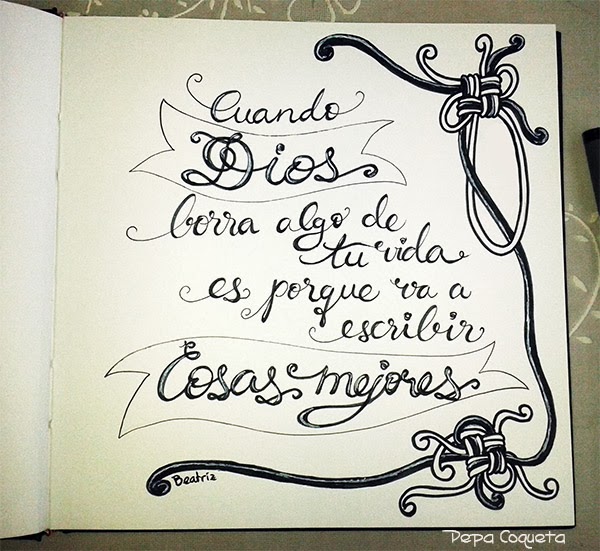 Cuando
Dios
borra algo de
tu vida
es porque va a
escribir
Cosas mejores
Beatriz
Pepa Coqueta